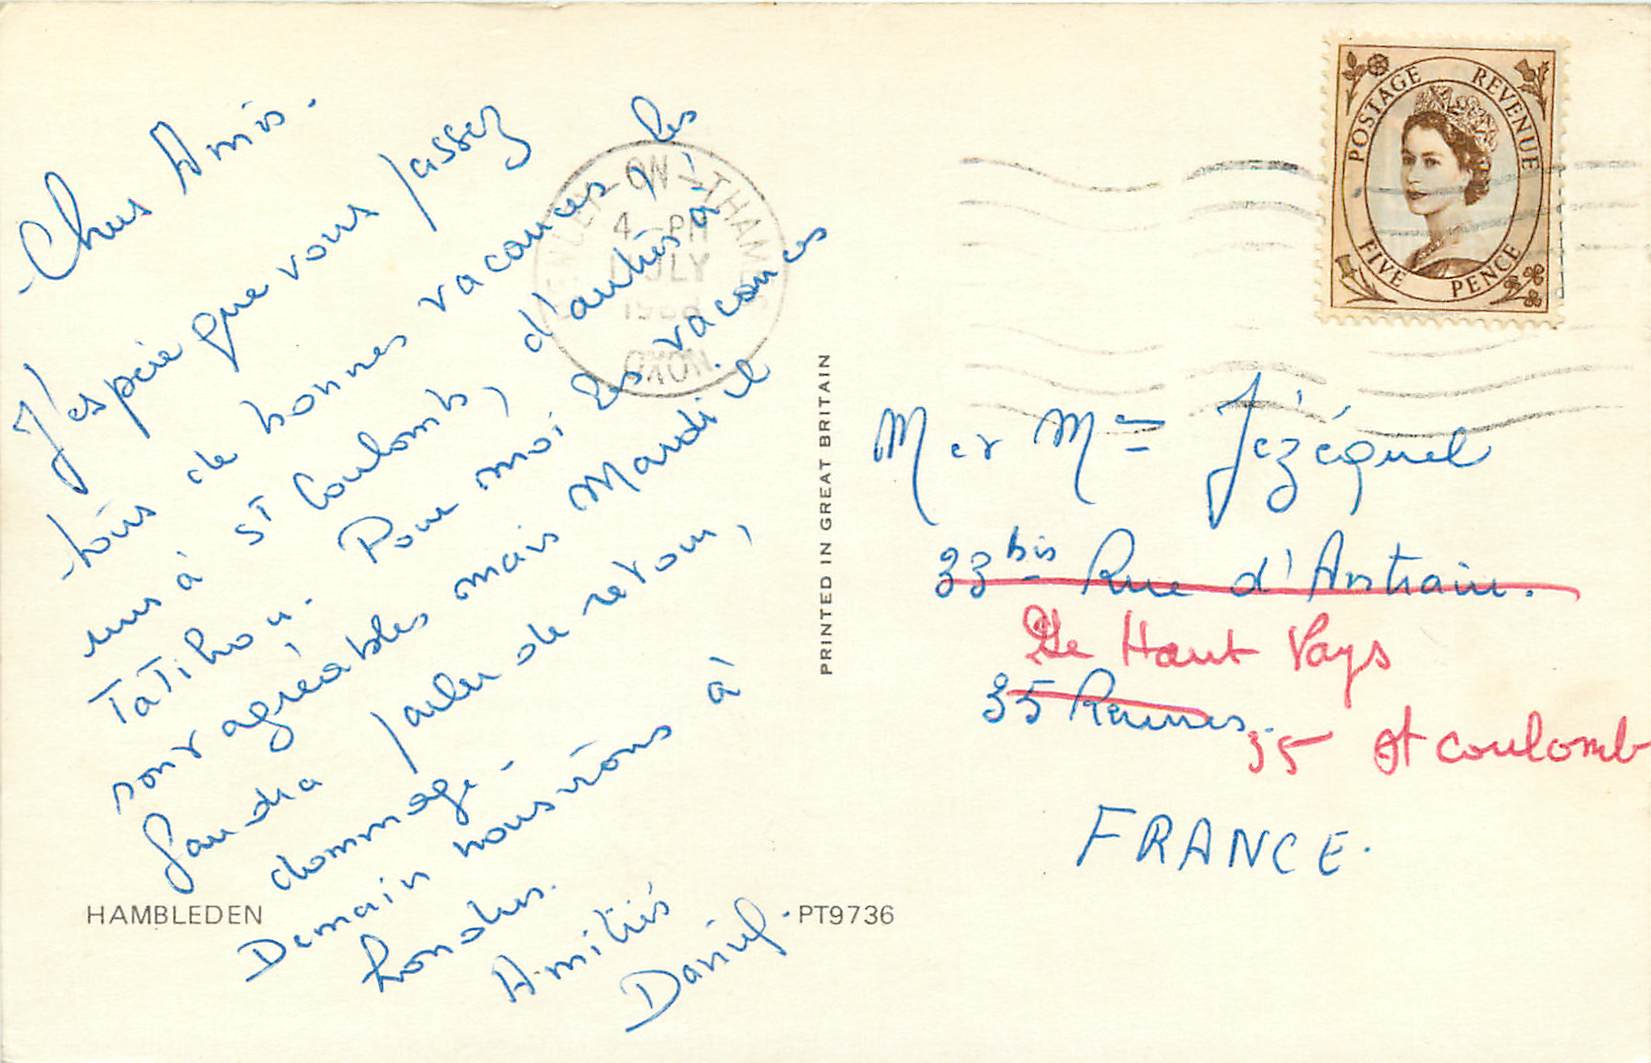 Chers Amis.
J'espère que vous passez
tous de bonnes vacances, les
uns à St Coulomb, d'autres à
Tatihou. Pour moi les vacances
sont agréables mais Mardi il
faudra parler de retour,
dommage.
Demain nous irons à
Londres.
Amitiés
Daniel.
HAMBLEDEN
PT9736
PRINTED IN GREAT BRITAIN
HENLEY-ON-THAMES
4-PM
JULY
OXON.
POSTAGE REVENUE
FIVE PENCE
M et Mme Jézéquel
33 bis Rue d'Antrain.
Le Haut Pays
35 Rennes.
35 St Coulomb
FRANCE.